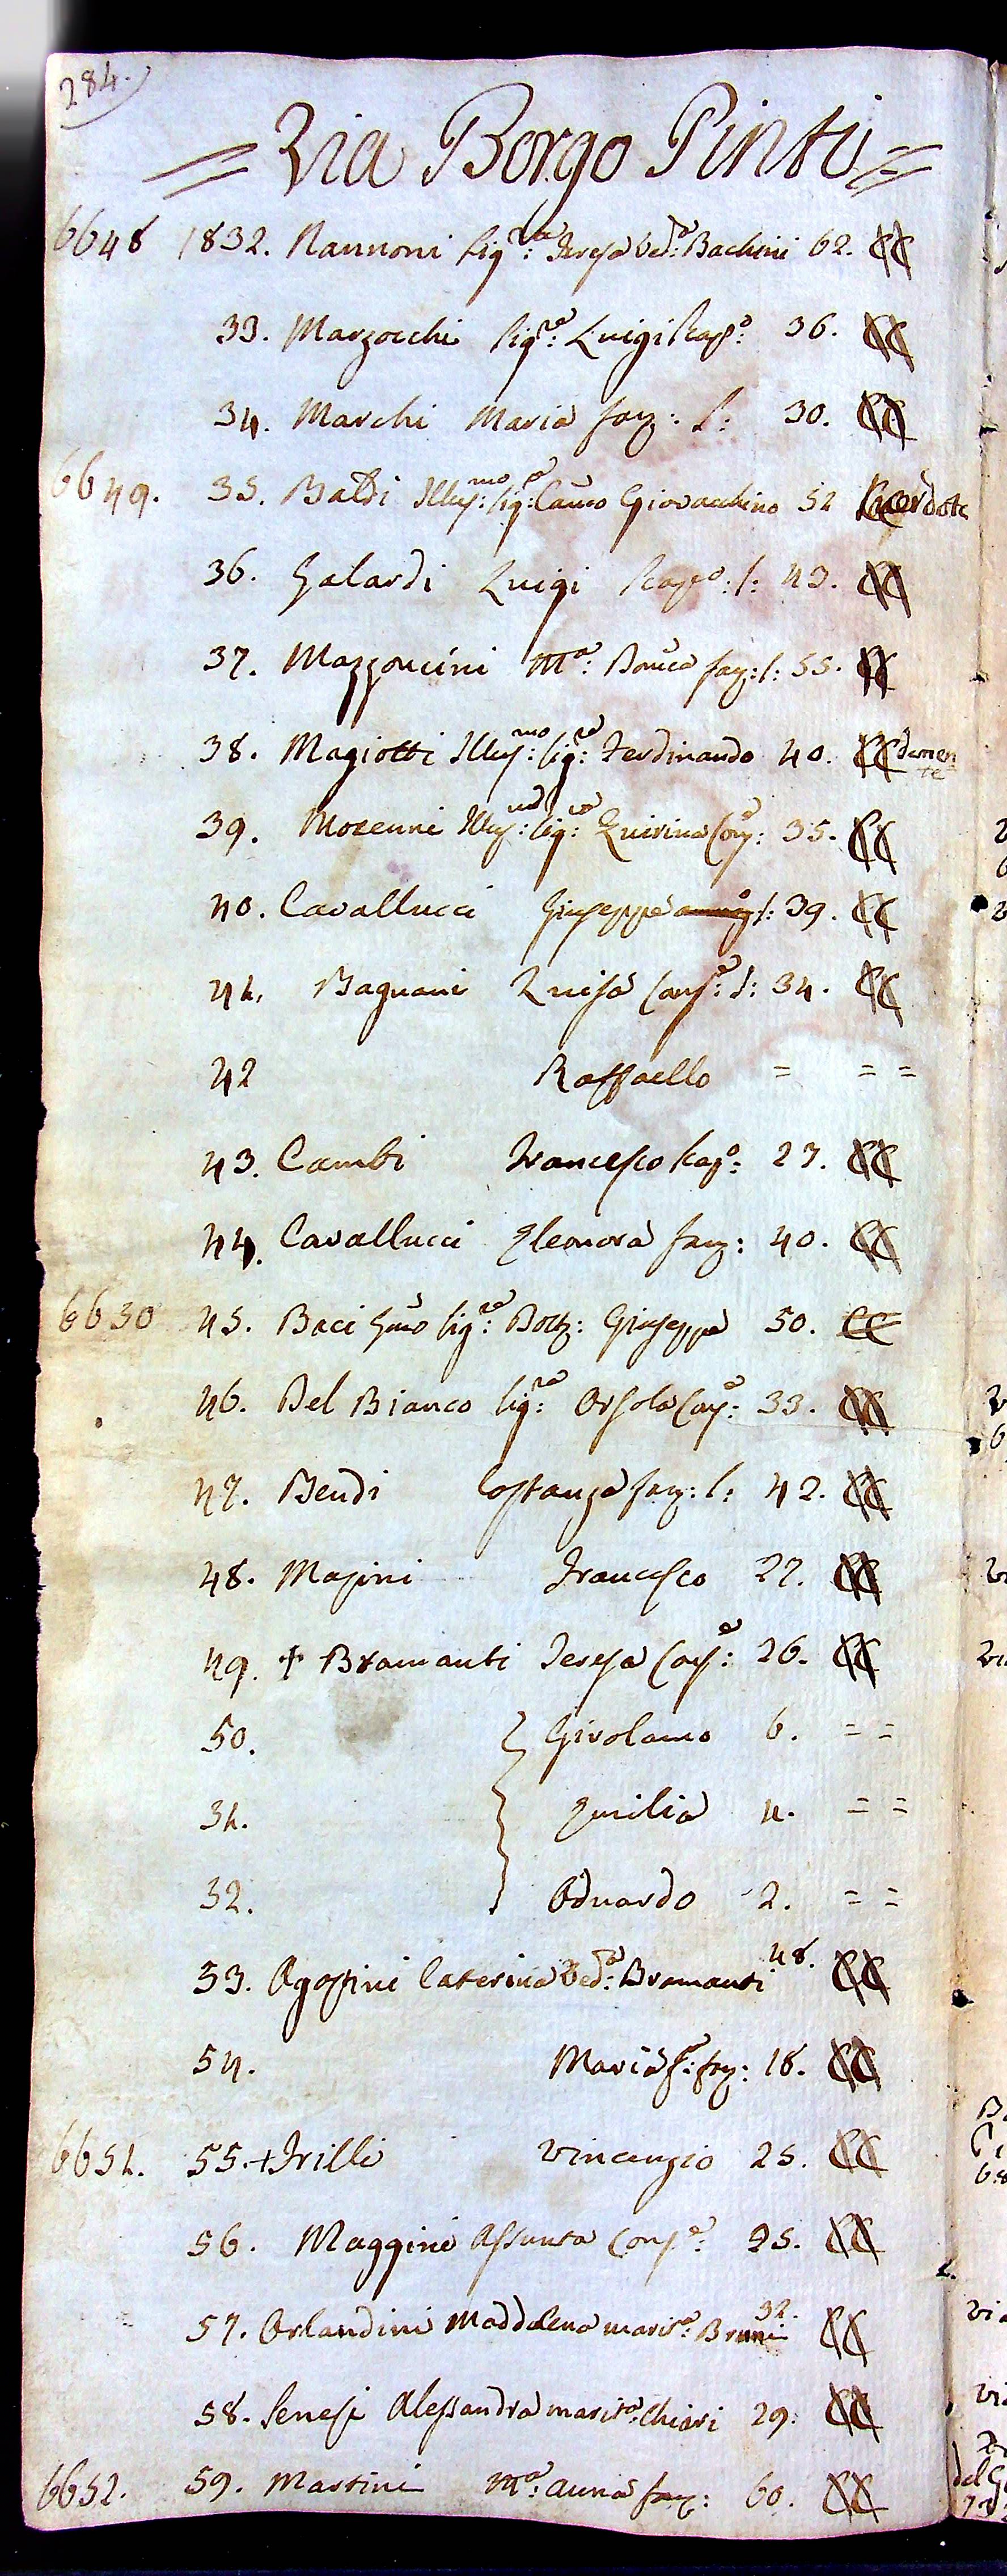 284.
= Via Borgo Pinti =
6648 1832. Nannoni Sig:ra Teresa Ved:a Bachini 62. CC
33. Marzocchi Sig:re Luigi Scap:o 36. CC
34. Marchi Maria fan: S: 30. CC
6649. 35. Baldi Illus:mo Sig:re Canco Giovacchino 52 Sacerdote
36. Galardi Luigi Scapo: S: 43. CC
37. Mazzoncini Ma: Domca fan: S: 55. CC
38. Magiotti Illus:mo Sig:re Ferdinando 40. CC demente
39. Mozenni Illus: Sig:ra Quirina Con:e 35. CC
40. Cavallucci Giuseppe S: 39. CC
41. Bagnani Luisa Cons:e S: 34. CC
42 Raffaello = = =
43. Cambi Francesco Scapo: 23. CC
44. Cavallucci Eleonora fan: 40. CC
6650 45. Baci Sig:re Dott: Giuseppe 50. CC
46. Del Bianco Sig:ra Orsola Con:e 33. CC
47. Bendi Costanza fan: S: 42. CC
48. Masini Francesco 27. CC
49. + Bramanti Teresa Cons:e 26. CC
50. Girolamo 6. = =
51. Emilia 4. = =
52. Oduardo 2. = =
53. Agostini Caterina Ved:a Bramanti 48. CC
54. Maria f:a fan: 18. CC
6651. 55. + Frilli Vincenzio 25. CC
56. Maggini Assunta Cons:e 25. CC
57. Orlandini Maddalena marit:a Bruni 32. CC
58. Senesi Alessandra marit:a Chiari 29: CC
6652. 59. Martini Ma: Anna fan: 60. CC